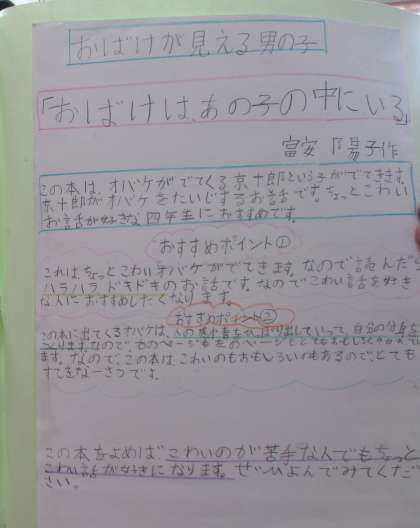 おばけが見える男の子
「おばけは、あの子の中にいる」
富安陽子作
この本は、オバケがでてくる京十郎という子がでてきます。
京十郎がオバケをたいじするお話です。ちょっとこわい
お話が好きな四年生におすすめです。
おすすめポイント①
これはちょっとこわいオバケがでてきます。なので読んだら
ハラハラドキドキのお話です。なのでこわい話を好き
な人におすすめしたくなります。
おすすめポイント②
この本に出てくるオバケは、人の
ます。なので、この本はこわいのもおもしろいのもあるので、とても
すてきな一さつです。
この本をよめば、こわいのが苦手な人でもちょっと
こわい話が好きになります。ぜひよんでみてくだ
さい。